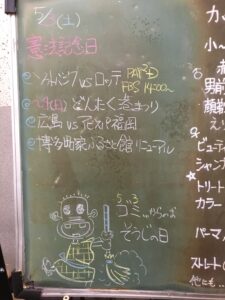 5/3(土)
憲法記念日
ソフトバンクvsロッテ
14:00~
どんたく港まつり
広島vsアビスパ福岡
博多町家ふるさと館リニューアル
5 3
ゴミ
そうじの日
カッ
小~
男前
顔剃
ビューテ
シャンプ
☆トリート
カラー
パーマ
ストレート(
他にも..